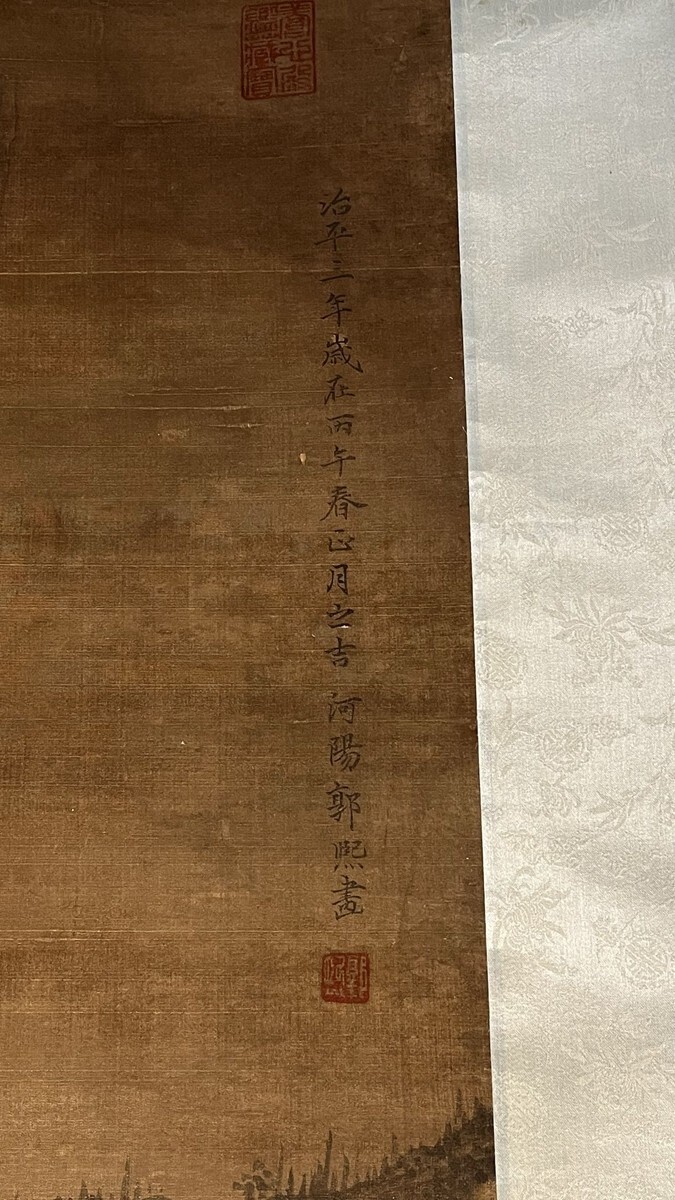 治平三年歲在丙午春正月之吉 河陽郭熙畫
郭熙